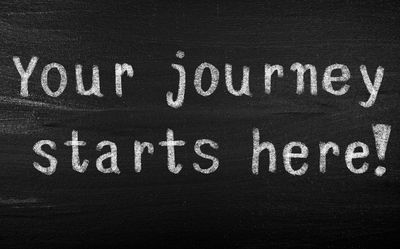 Your journey
starts here!